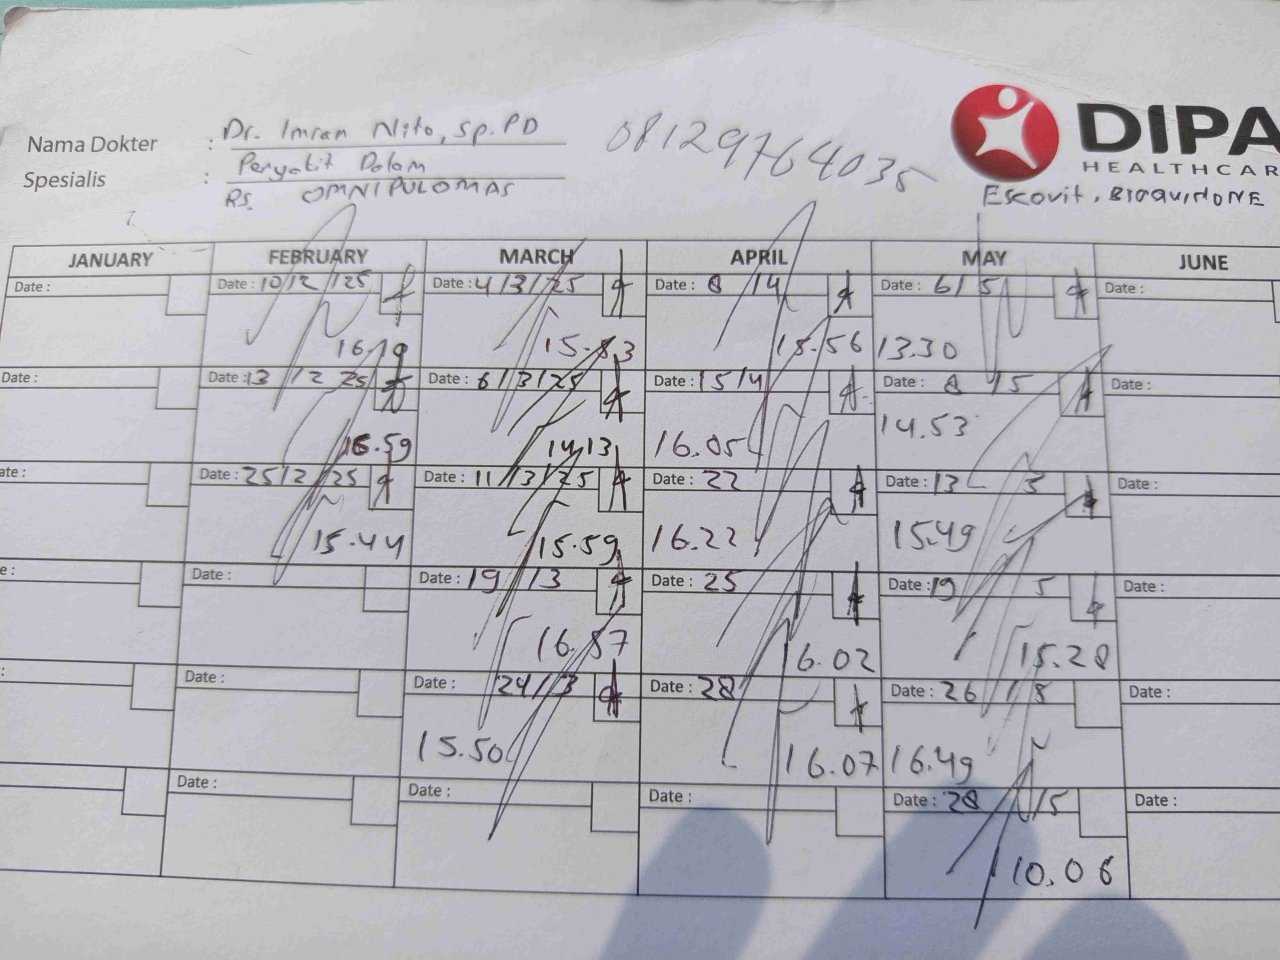 Nama Dokter : Dr. Imran Nito, Sp.PD
Spesialis : Penyakit Dalam
RS. OMNI PULOMAS
08129764035
DIPA
HEALTHCAR
Escovit, BIOQUINONE
JANUARY FEBRUARY MARCH APRIL MAY JUNE
Date : Date : 10/2/25 Date : 4/3/25 Date : 8/4 Date : 6/5 Date :
16.19 15.53 15.56 13.30
Date : Date : 13/2 25 Date : 6/3/25 Date : 15/4 Date : 8/5 Date :
16.59 14.13 16.05 14.53
ate : Date : 25/2/25 Date : 11/3/25 Date : 22 Date : 13 5 Date :
15.44 15.59 16.22 15.49
e : Date : Date : 19/3 Date : 25 Date : 19 5 Date :
16.57 16.02 15.28
: Date : Date : 24/3 Date : 28 Date : 26/5 Date :
15.50 16.07 16.49
Date : Date : Date : Date : 28/5 Date :
10.06